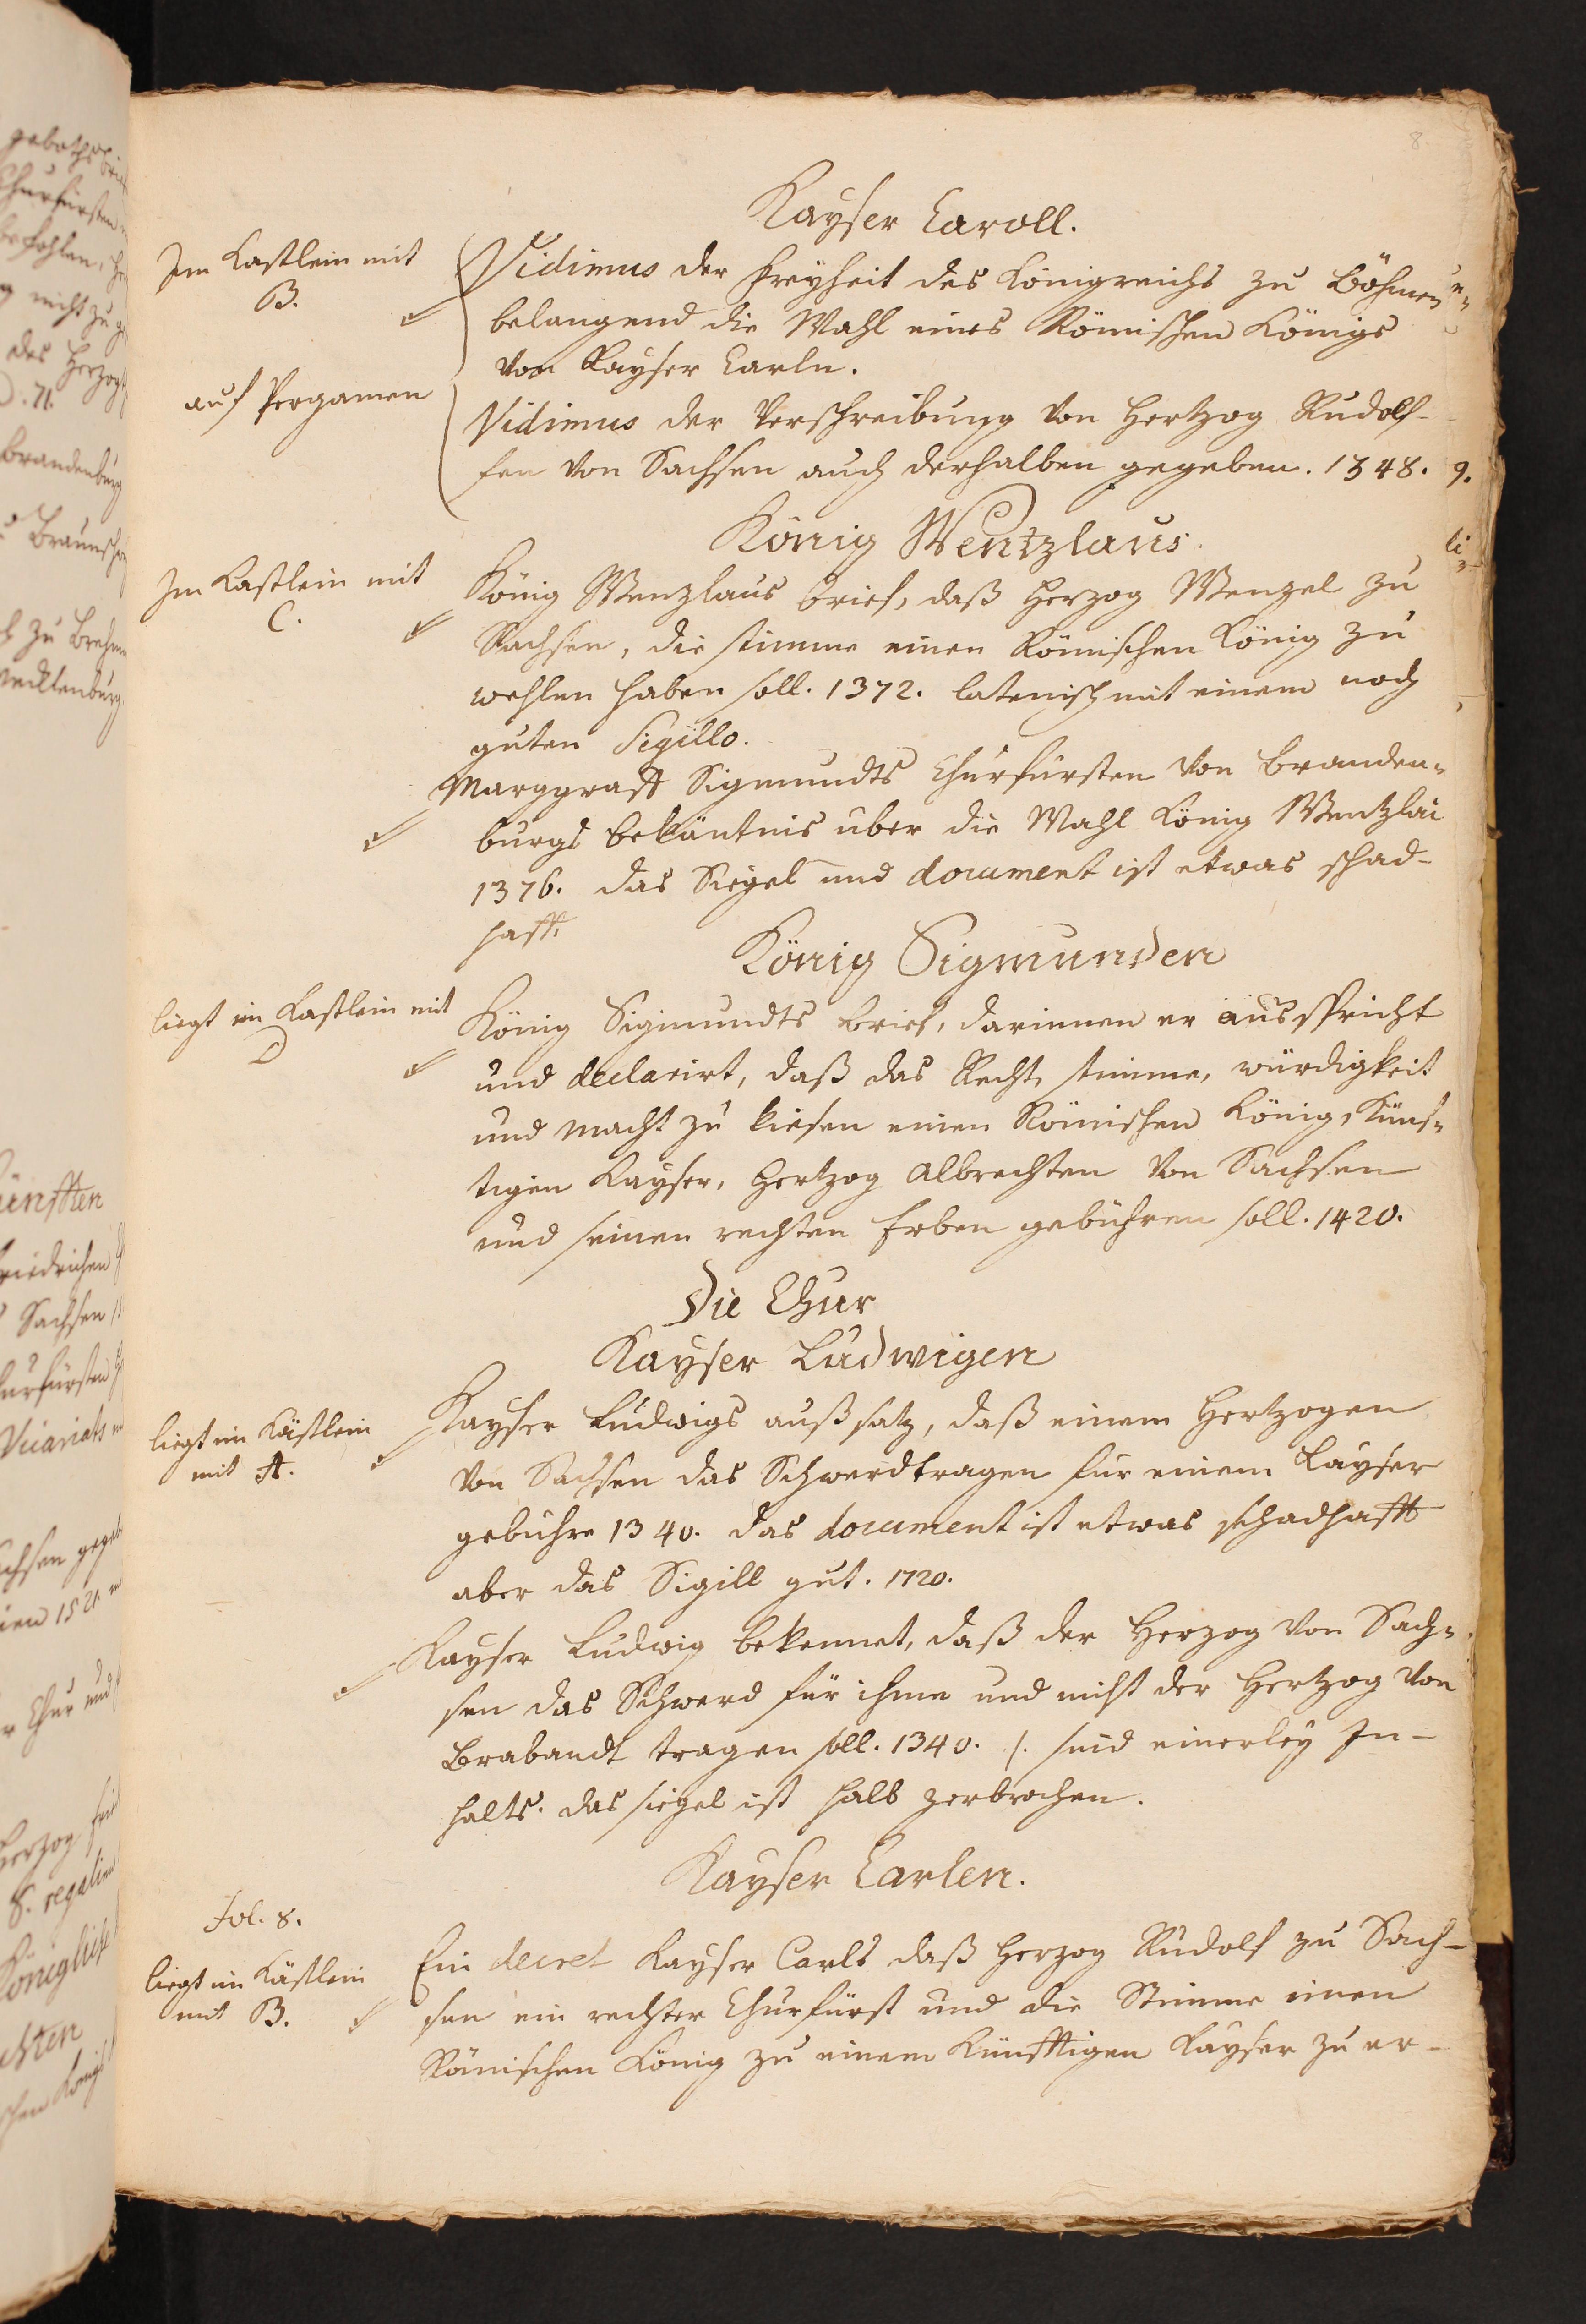 8
Kayser Caroll.
Im Kastlein mit
B.
Vidimus der Freyheit des Königreichs zu Böhmen
belangend die Wahl eines Römischen Königs
von Kayser Carln.
auf Pergamen
Vidimus der Verschreibung von Hertzog Rudolf-
fen von Sachsen auch derhalben gegeben. 1348.
König Wentzlaus.
Im Kastlein mit
C.
König Wenzlaus brief, daß Herzog Wenzel zu
Sachsen, die stimme einen Römischen König zu
wehlen haben soll. 1372. latenisch mit einem noch
guten Sigillo.
Marggraff Sigmundts Churfürsten von Branden=
burgs bekäntnis uber die Wahl König Wentzlai
1376. das Siegel und document ist etwas schad-
hafft.
König Sigmunden
liegt im Kastlein mit
D
König Sigmundts brief, darinnen er ausspricht
und declarirt, daß das Recht, stimme, würdigkeit
und Macht zu kiesen einen Römischen König, künf=
tigen Kayser, Hertzog Albrechten von Sachsen
und seinen rechten Erben gebühren soll. 1420.
Die Chur
Kayser Ludwigen
liegt im Kästlein
mit A.
Kayser Ludwigs außsatz, daß einem Hertzogen
von Sachsen das Schwerdtragen fur einem Kayser
gebuhre 1340. das document ist etwas schadhafft
aber das Sigill gut. 1720.
Kayser Ludwig bekennet, daß der Herzog von Sach=
sen das Schwerd für ihme und nicht der Hertzog von
Brabandt tragen soll. 1340. /. sind einerley In-
halts. das siegel ist halb zerbrochen.
Kayser Carlen.
Fol. 8.
liegt im Kästlein
mit B.
Ein decret Kayser Carls daß Herzog Rudolf zu Sach-
sen ein rechter Churfürst und die Stimme einen
Römischen König zu einem Künfftigen Kayser zu er-